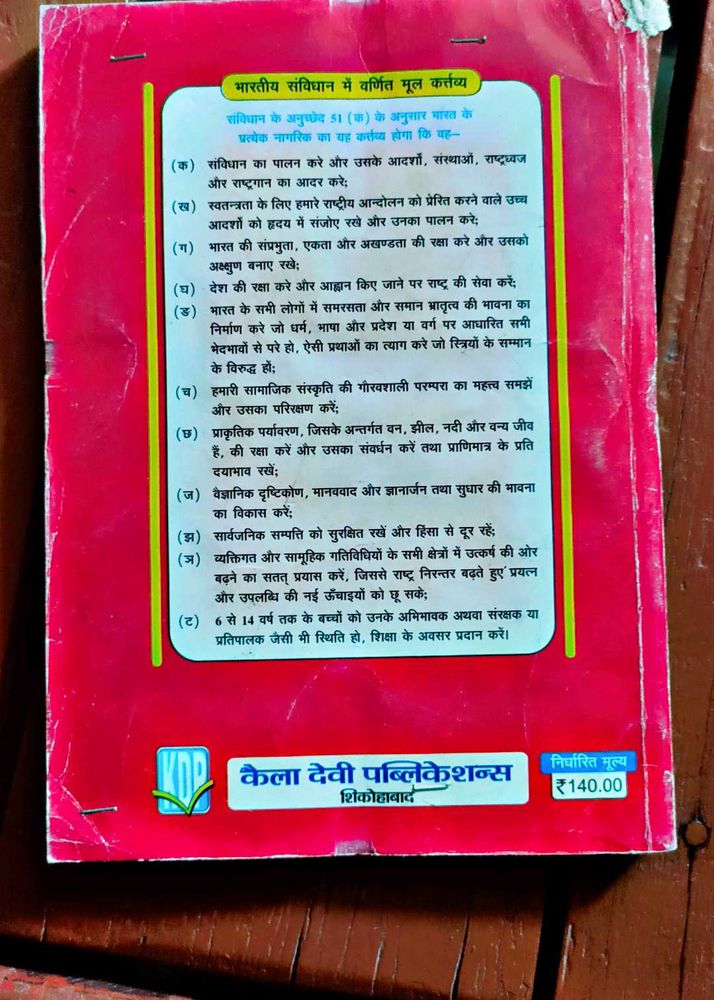 भारतीय संविधान में वर्णित मूल कर्त्तव्य
संविधान के अनुच्छेद 51 (क) के अनुसार भारत के
प्रत्येक नागरिक का यह कर्त्तव्य होगा कि वह—
(क) संविधान का पालन करे और उसके आदर्शों, संस्थाओं, राष्ट्रध्वज
और राष्ट्रगान का आदर करे;
(ख) स्वतन्त्रता के लिए हमारे राष्ट्रीय आन्दोलन को प्रेरित करने वाले उच्च
आदर्शों को हृदय में संजोए रखे और उनका पालन करे;
(ग) भारत की संप्रभुता, एकता और अखण्डता की रक्षा करे और उसको
अक्षुण बनाए रखे;
(घ) देश की रक्षा करे और आह्वान किए जाने पर राष्ट्र की सेवा करें;
(ङ) भारत के सभी लोगों में समरसता और समान भ्रातृत्व की भावना का
निर्माण करे जो धर्म, भाषा और प्रदेश या वर्ग पर आधारित सभी
भेदभावों से परे हो, ऐसी प्रथाओं का त्याग करे जो स्त्रियों के सम्मान
के विरुद्ध हों;
(च) हमारी सामाजिक संस्कृति की गौरवशाली परम्परा का महत्त्व समझें
और उसका परिरक्षण करें;
(छ) प्राकृतिक पर्यावरण, जिसके अन्तर्गत वन, झील, नदी और वन्य जीव
हैं, की रक्षा करें और उसका संवर्धन करें तथा प्राणिमात्र के प्रति
दयाभाव रखें;
(ज) वैज्ञानिक दृष्टिकोण, मानववाद और ज्ञानार्जन तथा सुधार की भावना
का विकास करें;
(झ) सार्वजनिक सम्पति को सुरक्षित रखें और हिंसा से दूर रहें;
(ञ) व्यक्तिगत और सामूहिक गतिविधियों के सभी क्षेत्रों में उत्कर्ष की ओर
बढ़ने का सतत् प्रयास करें, जिससे राष्ट्र निरन्तर बढ़ते हुए प्रयत्न
और उपलब्धि की नई ऊँचाइयों को छू सके;
(ट) 6 से 14 वर्ष तक के बच्चों को उनके अभिभावक अथवा संरक्षक या
प्रतिपालक जैसी भी स्थिति हो, शिक्षा के अवसर प्रदान करें।
KDP
कैला देवी पब्लिकेशन्स
शिकोहाबाद
निर्धारित मूल्य
₹140.00